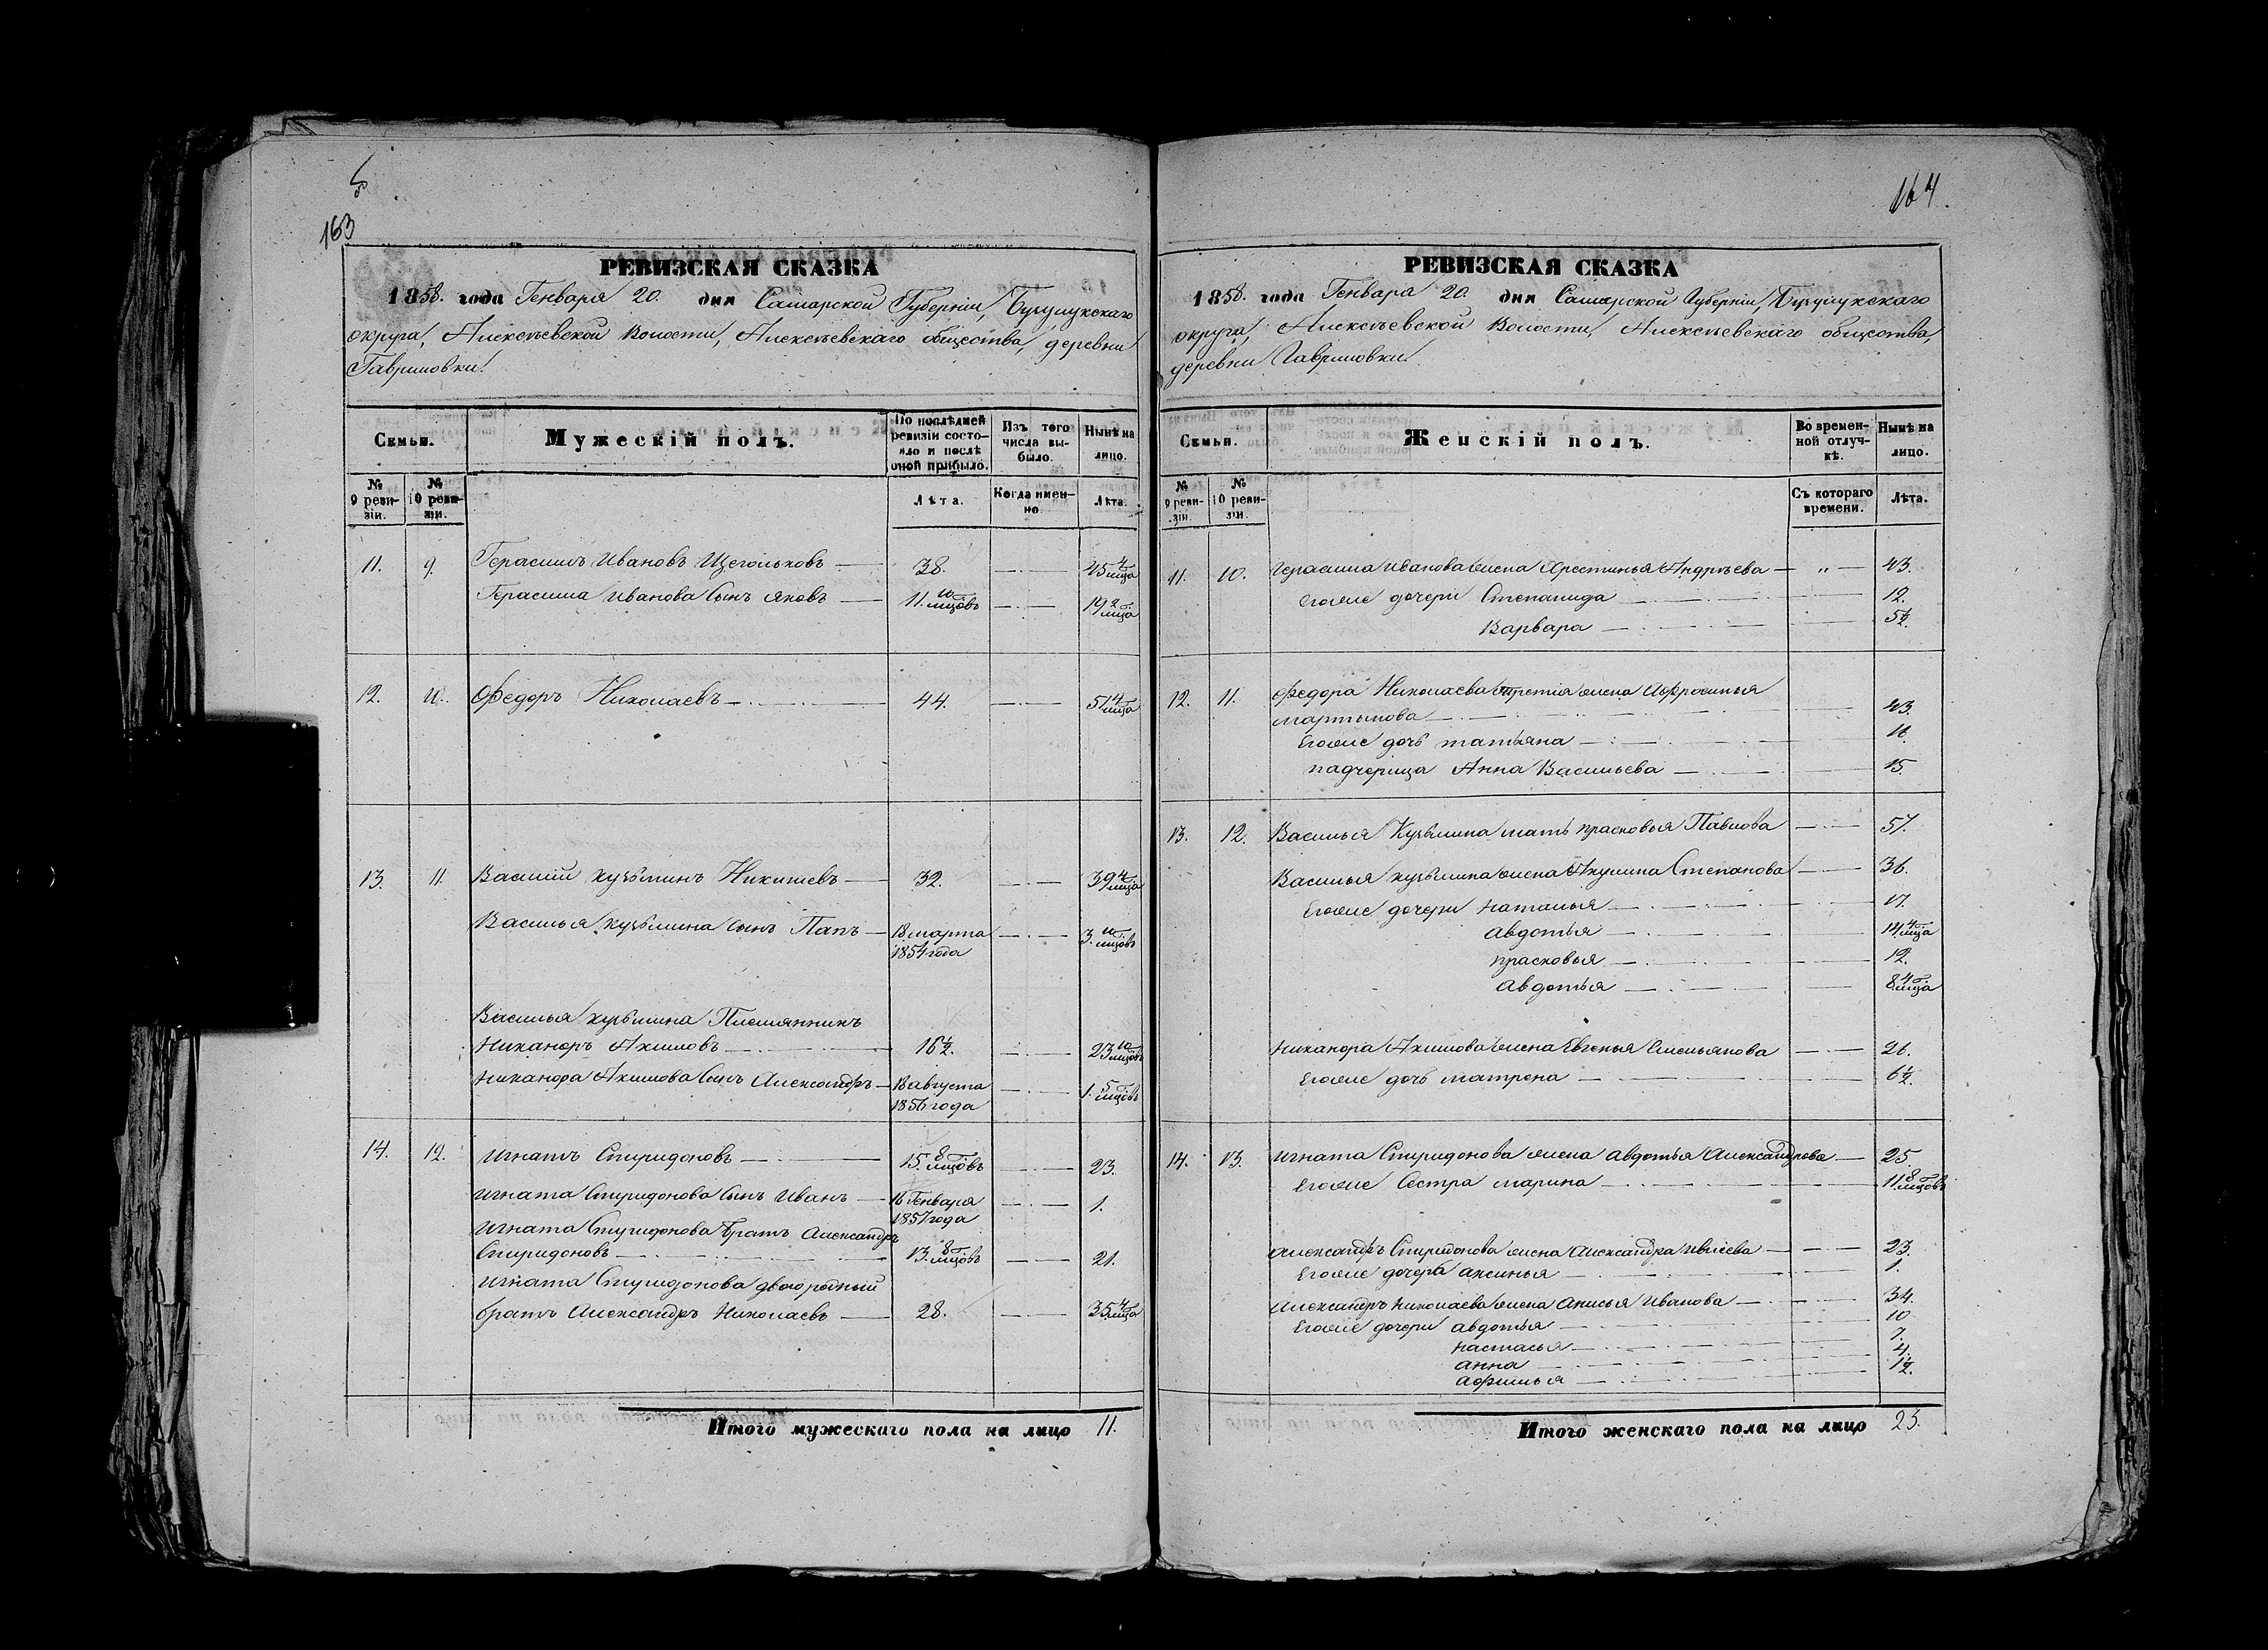 5
163
РЕВИЗСКАЯ СКАЗКА
1858. года Генваря 20. дня Самарской Губерніи, Бузулукскаго
округа, Алексѣевской Волости, Алексѣевскаго общества, деревни
Гавриловки.
Семьи. Мужескій полъ. По послѣдней ревизіи состояло и послѣ оной прибыло. Изъ того числа выбыло. Нынѣ на лицо.
№ 9 ревизіи. № 10 ревизіи. Лѣта. Когда именно. Лѣта.
11. 9. Герасимъ Ивановъ Щегольковъ — 38. — 45 4/мца
Герасима Иванова Сынъ Яковъ — 11. 10/мцовъ — 19 2/мца
12. 10. Федоръ Николаевъ — 44. — 51 4/мца
13. 11. Василій Кузьминъ Никишевъ — 32. — 39 4/мца
Василья Кузьмина Сынъ — 18 марта — 3. 10/мцовъ
1854 года
Василья Кузьмина Племянникъ
Никаноръ Акимовъ — 16 1/2. — 23 10/мцовъ
Никанора Акимова Сынъ Александръ — 18 августа — 1. 5/мцовъ
1856 года
14. 12. Игнатъ Спиридоновъ — 15. 8/мцовъ — 23.
Игната Спиридонова Сынъ Иванъ — 16 Генваря — 1.
1857 года
Игната Спиридонова братъ Александръ
Спиридоновъ — 13. 8/мцовъ — 21.
Игната Спиридонова двоюродный
братъ Александръ Николаевъ — 28. — 35 4/мца
Итого мужескаго пола на лицо 11.
164.
РЕВИЗСКАЯ СКАЗКА
1858. года Генваря 20. дня Самарской Губерніи, Бузулукскаго
округа, Алексѣевской Волости, Алексѣевскаго общества,
деревни Гавриловки.
Семьи. Женскій полъ. Во временной отлучкѣ. Нынѣ на лицо.
№ 9 ревизіи. № 10 ревизіи. Съ котораго времени. Лѣта.
11. 10. Герасима Иванова жена Хрестинья Андрѣева — „ — 43.
Егоже дочери Степанида — 12.
Варвара — 5 1/2.
12. 11. Федора Николаева третія жена Афросинья
Мартынова — 43.
Егоже дочь татьяна — 11.
падчерица Анна Васильева — 15.
13. 12. Василья Кузьмина мать прасковья Павлова — 57.
Василья Кузьмина жена Акулина Степанова — 36.
Егоже дочери Наталья — 17.
Авдотья — 14. 4/мца
прасковья — 12.
Авдотья — 8. 4/мца
Никанора Акимова жена Евгенья Емельянова — 26.
Егоже дочь матрена — 6 1/2.
14. 13. Игната Спиридонова жена авдотья Александрова — 25
Егоже Сестра марина — 11. 8/мцовъ
Александръ Спиридонова жена Александра — 23.
Егоже дочерь аксинья — 1.
Александръ Николаева жена Анисья Иванова — 34.
Егоже дочери авдотья — 10
настасья — 7.
анна — 4.
афимья — 1 1/2.
Итого женскаго пола на лицо 23.